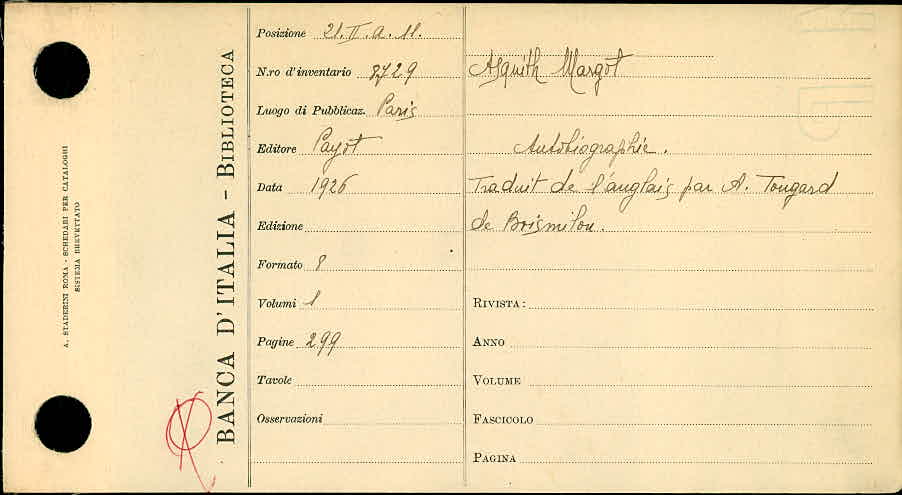 A. STADERINI ROMA - SCHEDARI PER CATALOGHI
SISTEMA BREVETTATO
BANCA D'ITALIA - BIBLIOTECA
Posizione 21. II. a. 11.
N.ro d'inventario 2729
Luogo di Pubblicaz. Paris
Editore Payot
Data 1926
Edizione
Formato 8
Volumi 1
Pagine 299
Tavole
Osservazioni
Asquith Margot
Autobiographie.
Traduit de l'anglais par A. Tougard
de Boismilon.
RIVISTA:
ANNO
VOLUME
FASCICOLO
PAGINA